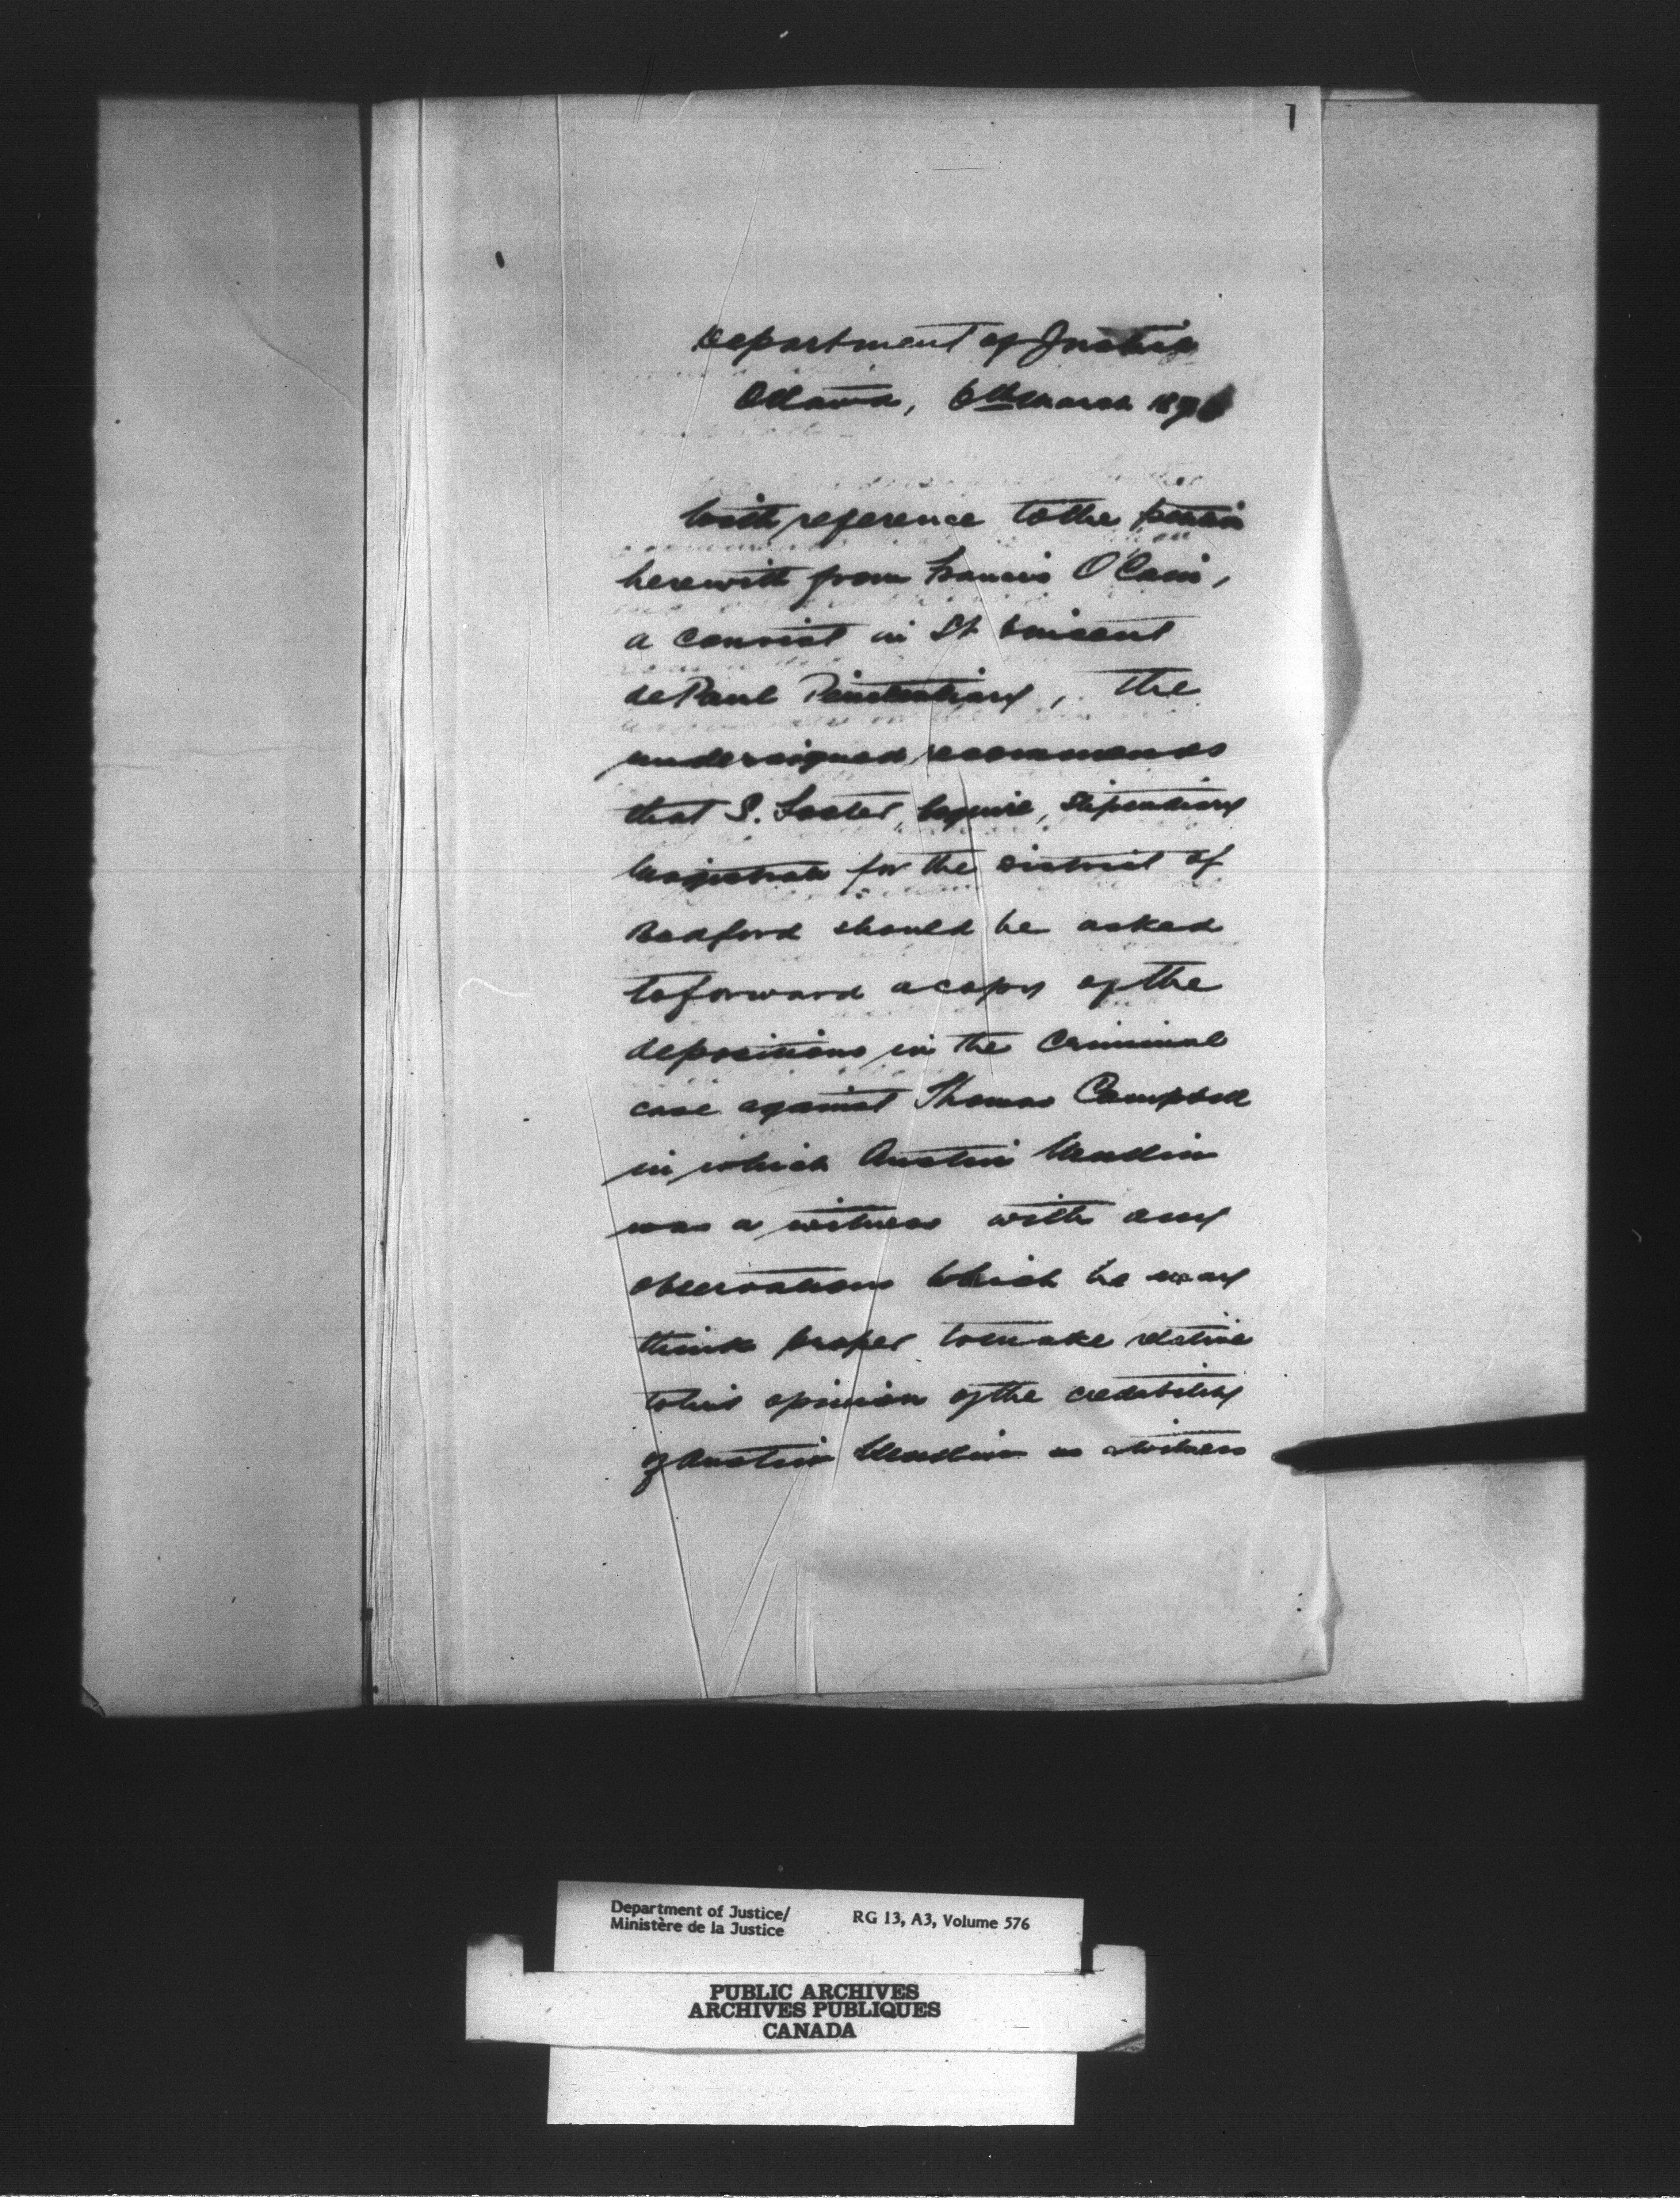 1
Department of Justice
Ottawa, 6th March 187
With reference to the petition
herewith from Francis O'Cain,
a convict in St Vincent
de Paul Penitentiary, the
undersigned recommends
that S. Foster, Esquire, Stipendiary
Magistrate for the District of
Bedford should be asked
to forward a copy of the
depositions in the Criminal
case against Thomas Campbell
in which Austin
was a witness with any
observations which he may
think proper to make relative
to his opinion of the credibility
of Austin as a witness
Department of Justice/
Ministère de la Justice
RG 13, A3, Volume 576
PUBLIC ARCHIVES
ARCHIVES PUBLIQUES
CANADA